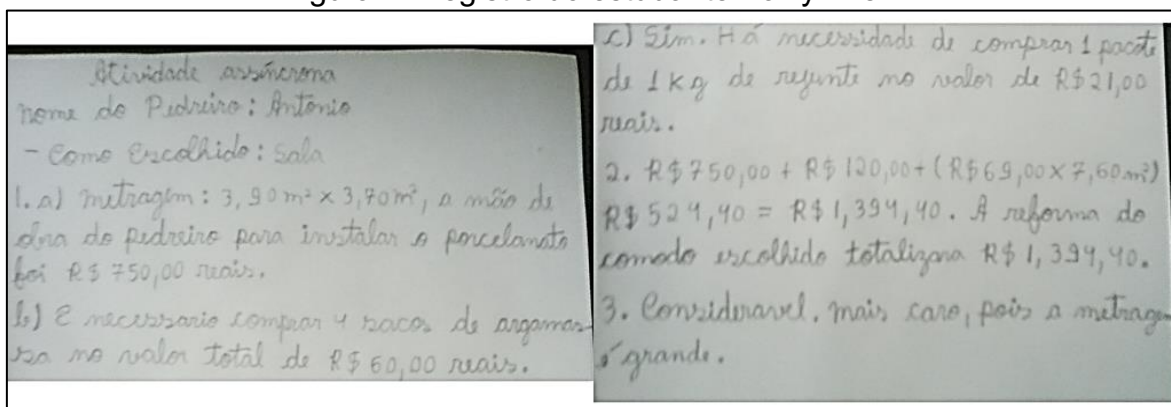 Atividade assíncrona
nome do Pedreiro: Antonio
- Como Escolhido: Sala
1. a) metragem: 3,90 m² x 3,70 m², a mão de
obra do pedreiro para instalar o porcelanato
foi R$ 750,00 reais.
b) É necessario comprar 4 sacos de argamas-
sa no valor total de R$ 60,00 reais.
c) Sim. Há necessidade de comprar 1 pacote
de 1 kg de rejunte no valor de R$ 21,00
reais.
2. R$ 750,00 + R$ 120,00 + (R$ 69,00 x 7,60 m²)
R$ 524,40 = R$ 1,394,40. A reforma do
comodo escolhido totalizara R$ 1,394,40.
3. Consideravel. mais caro, pois a metragem
é grande.